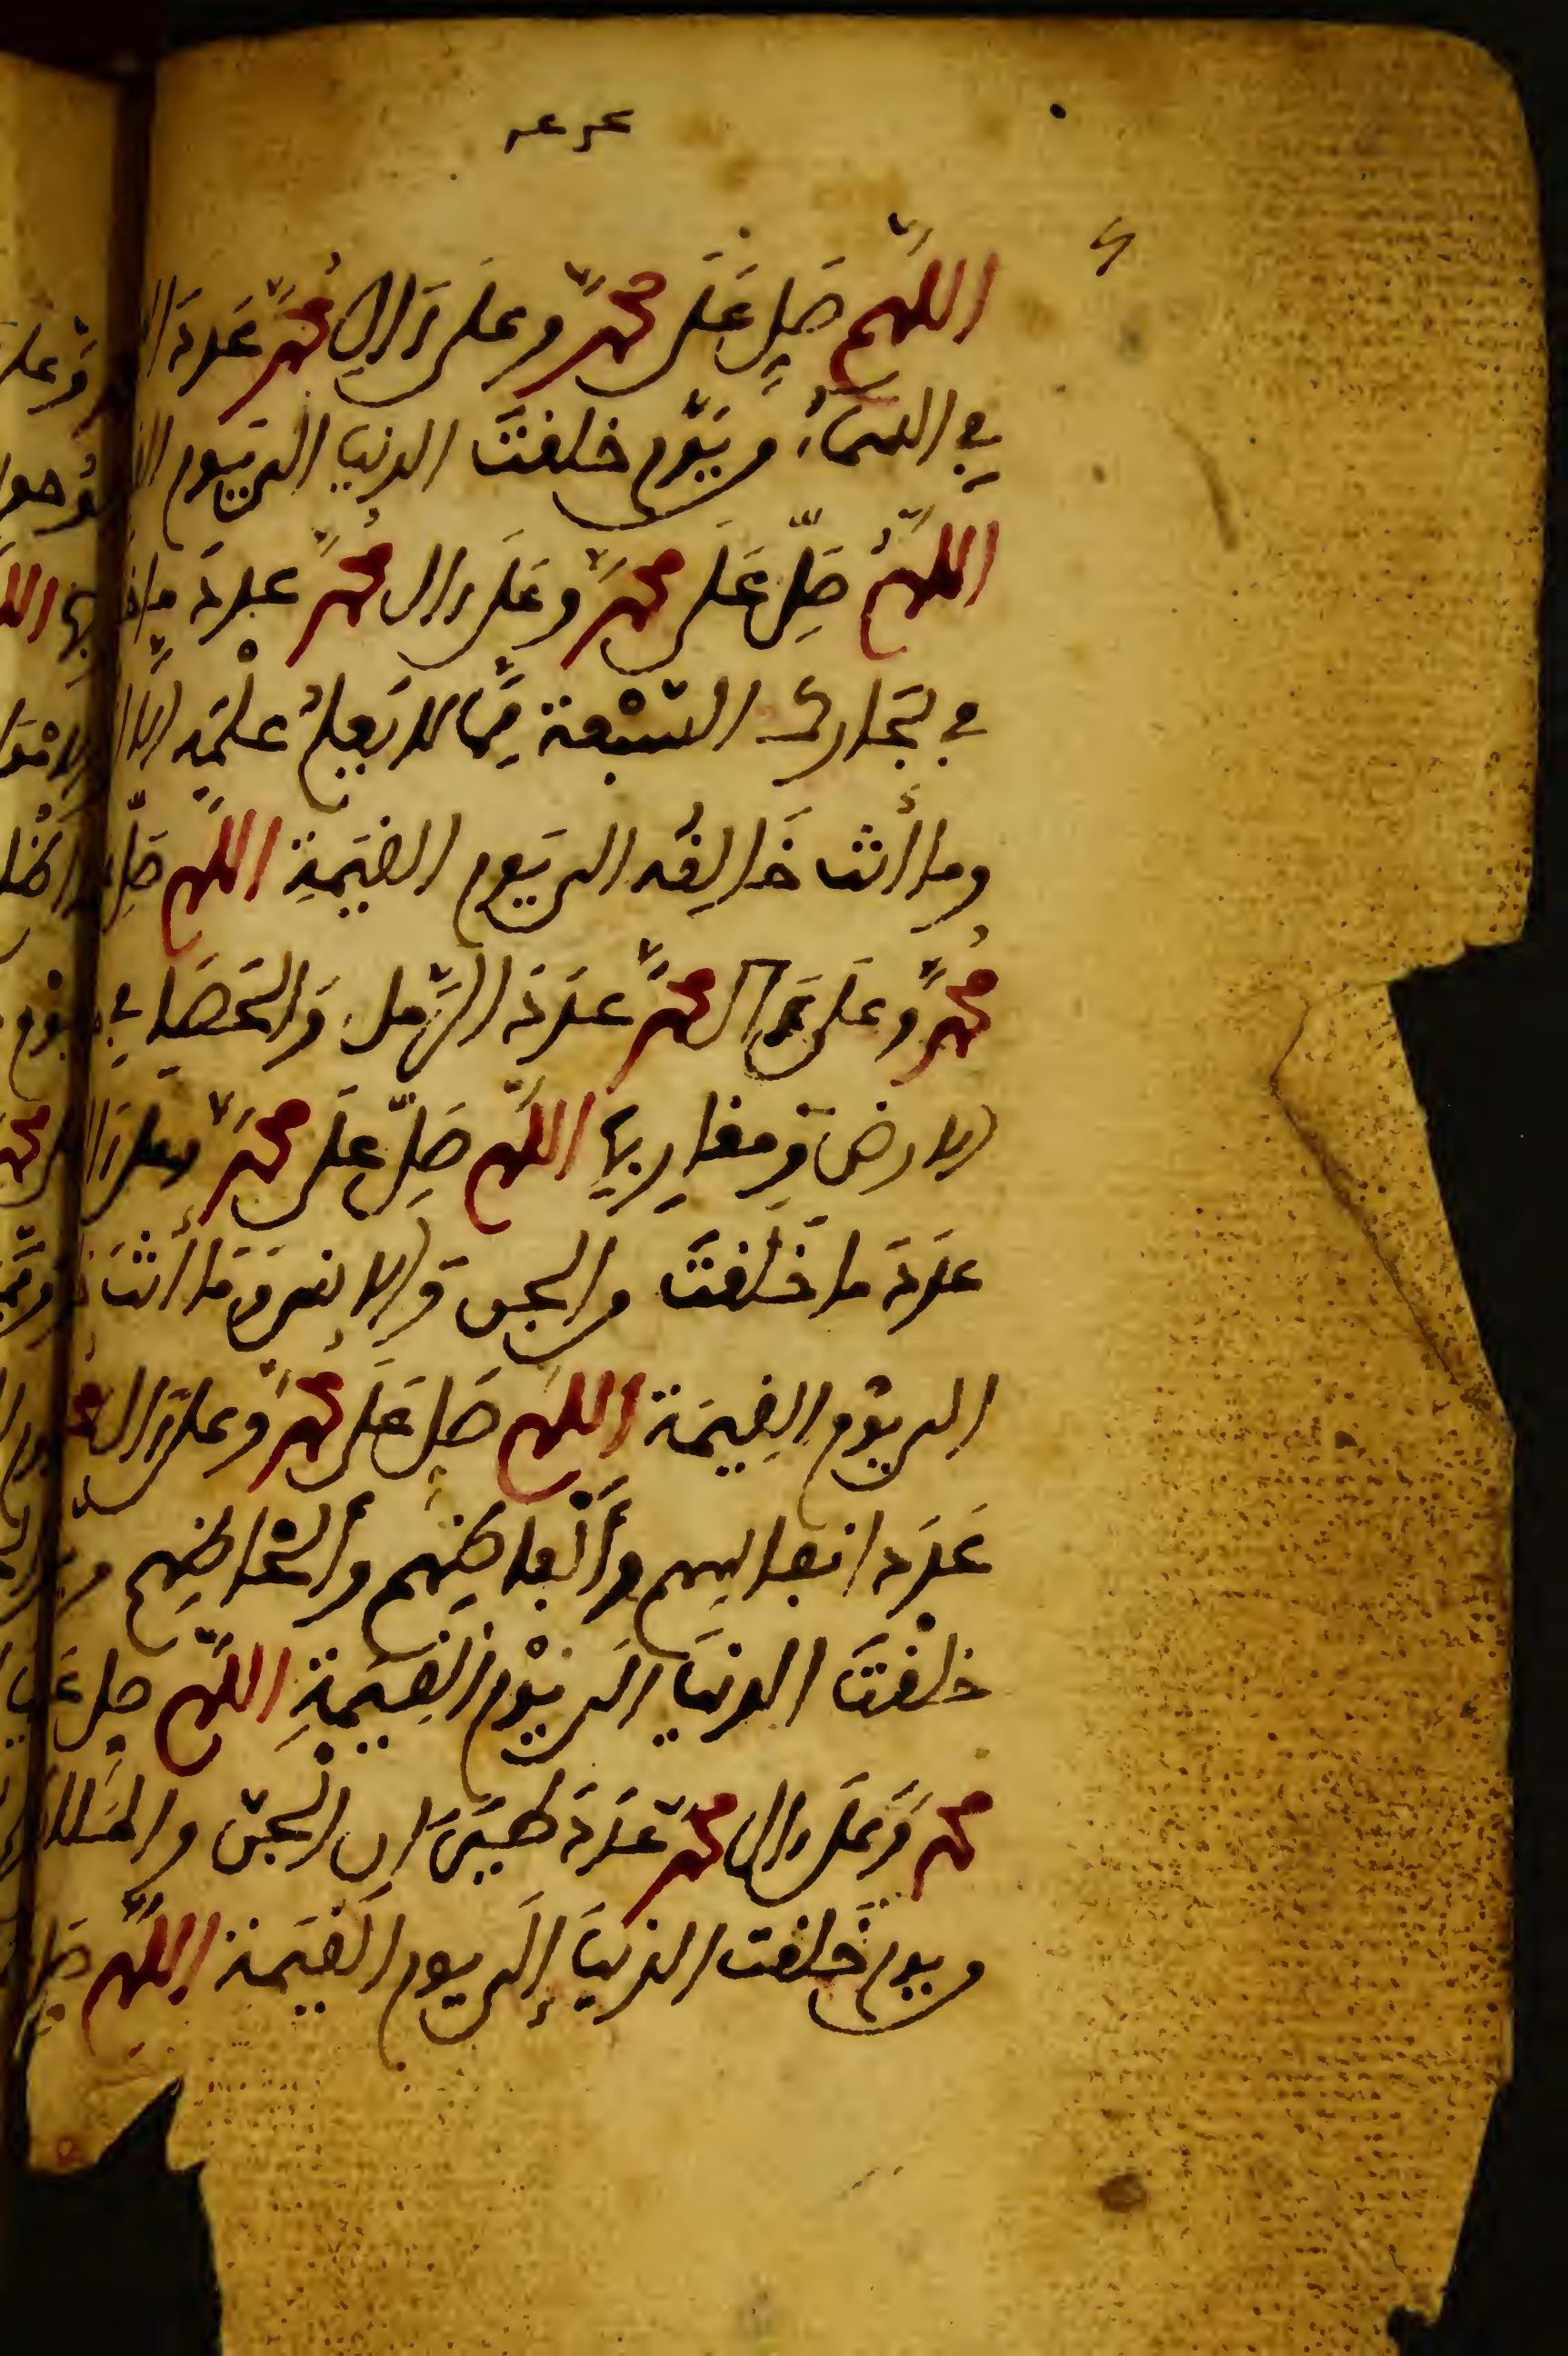 اللهم صل على محمد وعلى ءال محمد عدد
في السماء ويوم خلقت الدنيا الى يوم
اللهم صل على محمد وعلى ءال محمد عدد ما
في بحارك السبعة مما لا يعلم علمه الا
وما أنت خالقه الى يوم القيمة اللهم صل
محمد وعلى ءال محمد عدد الرمل والحصا في
الارض ومغاربها اللهم صل على محمد وعلى ءال
عدد ما خلقت والجن والانس وما أنت
الى يوم القيمة اللهم صل على محمد وعلى ءال
عدد انفاسهم وألفاظهم وألحاظهم و
خلقت الدنيا الى يوم القيمة اللهم صل
محمد وعلى ءال محمد عدد طيران الجن
ويوم خلقت الدنيا إلى يوم القيمة اللهم صل